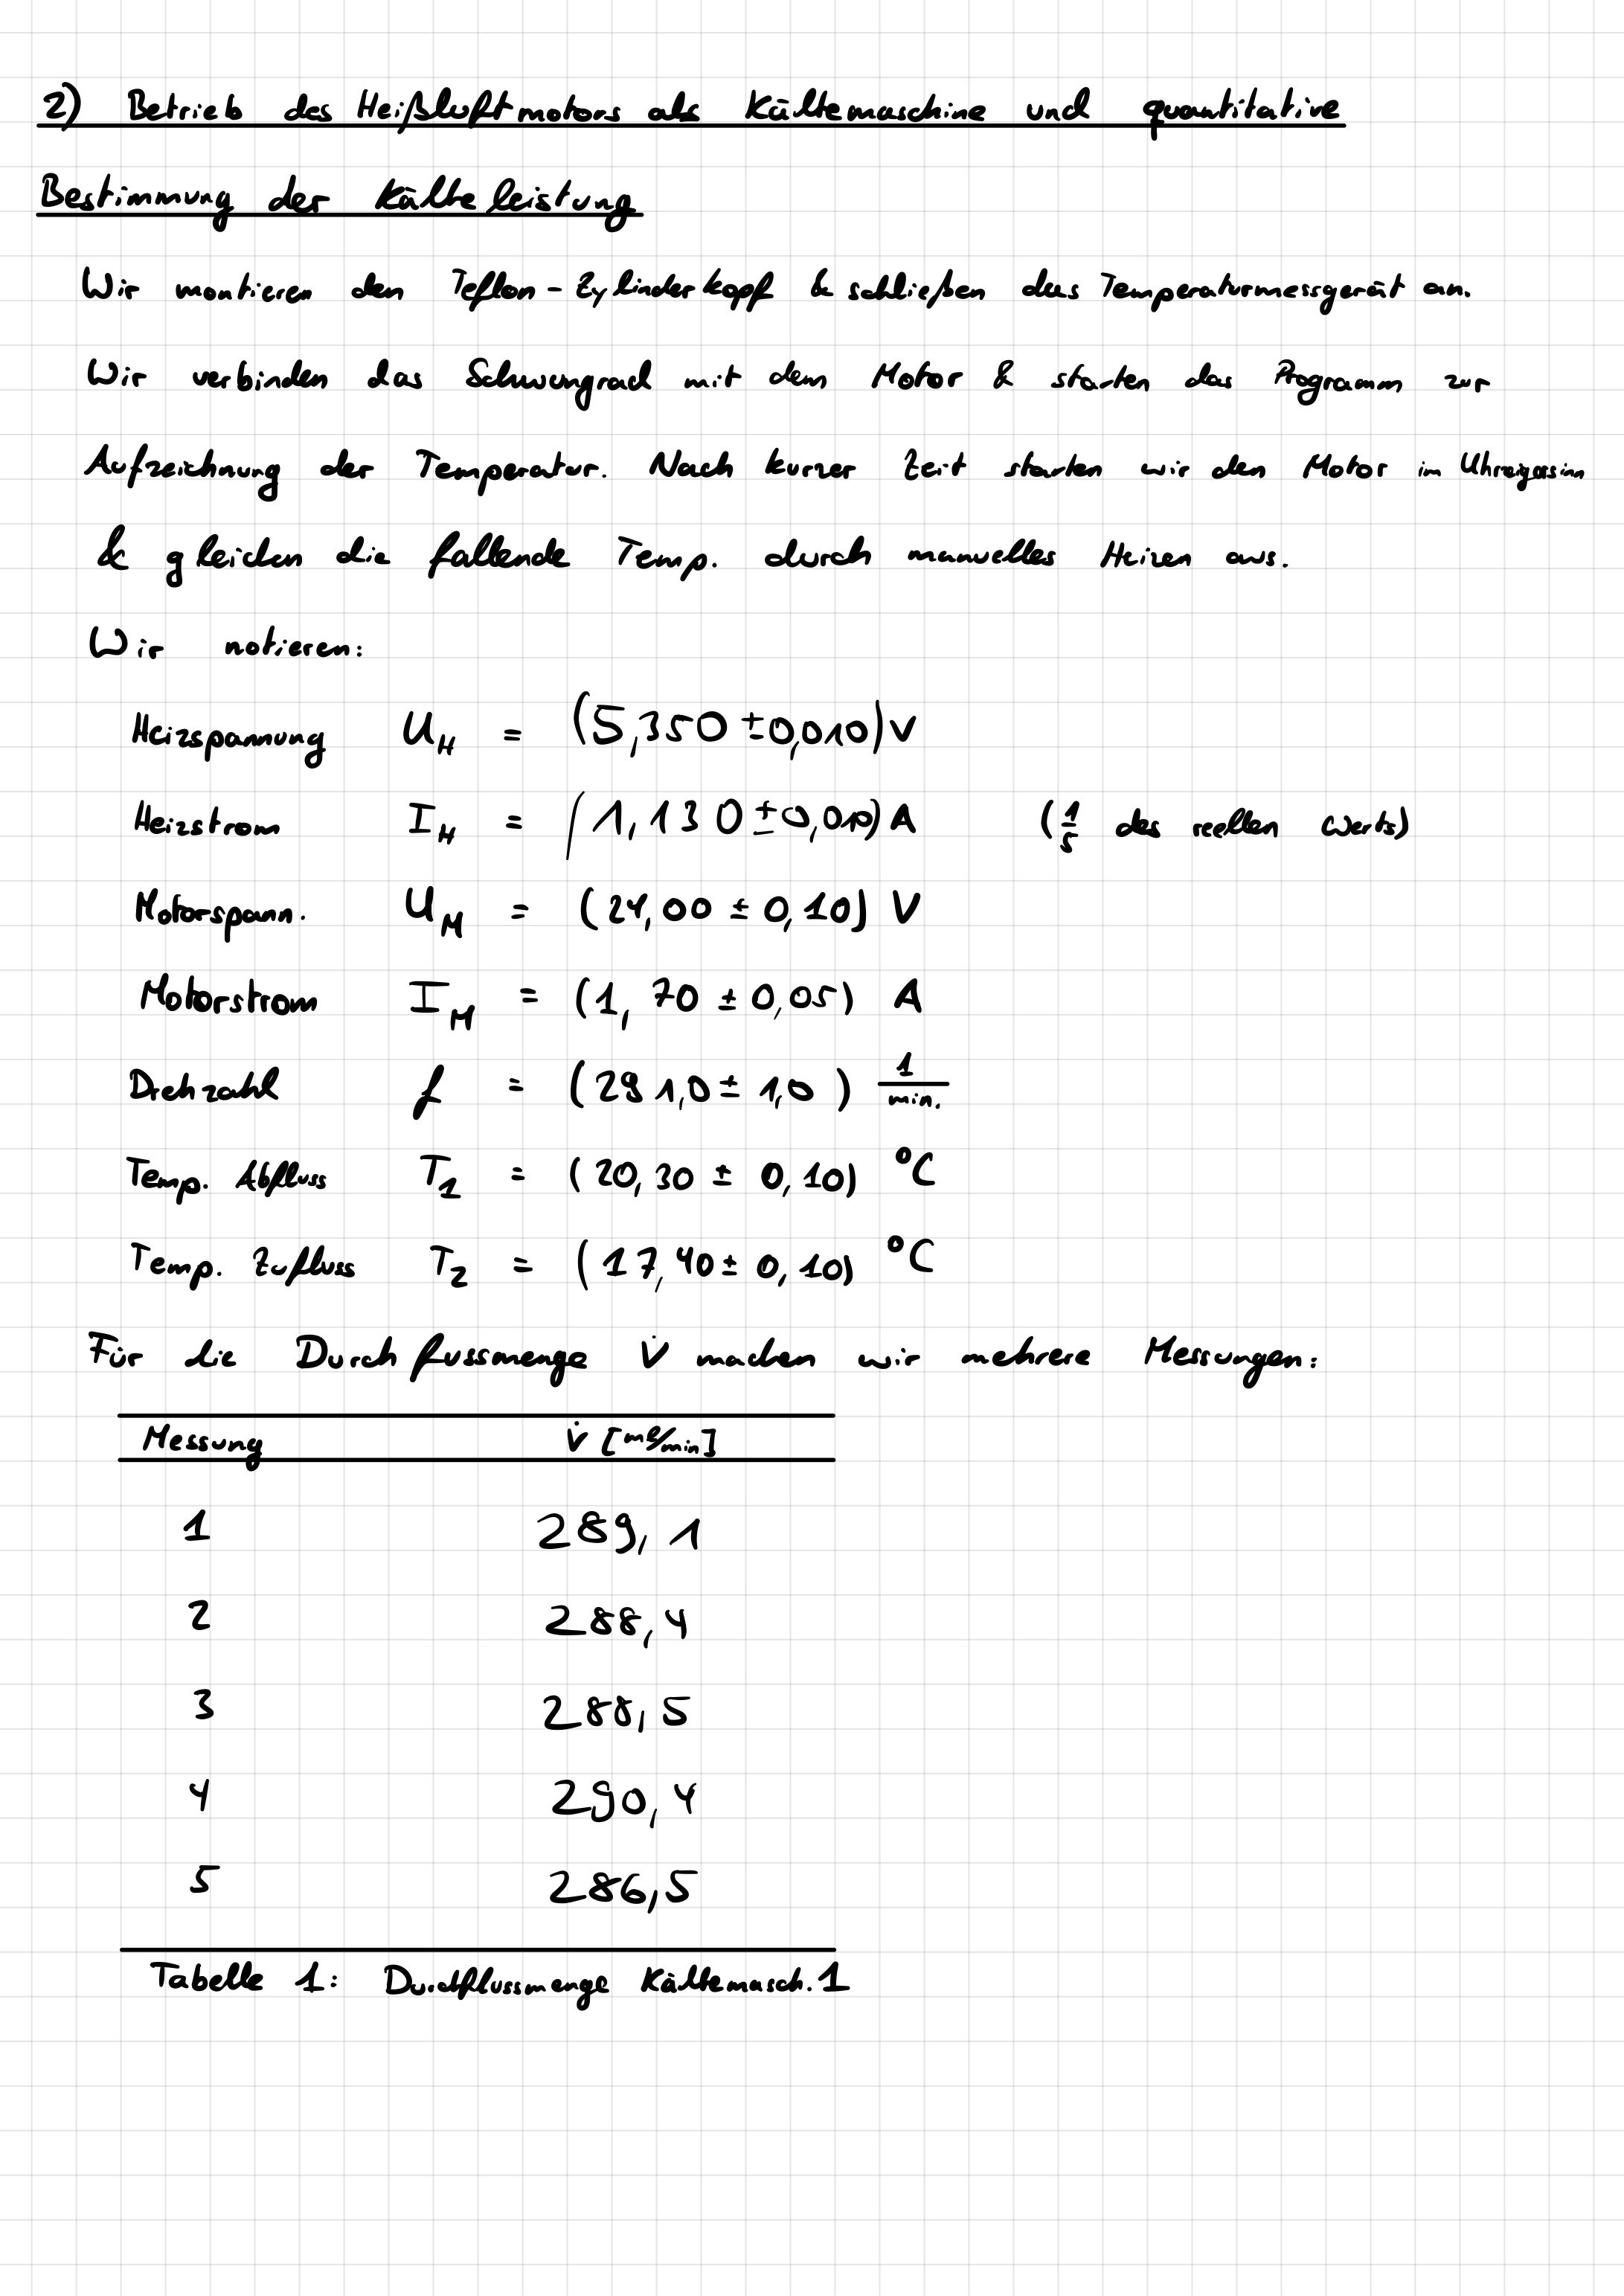 2) Betrieb des Heißluftmotors als Kältemaschine und quantitative
Bestimmung der Kälteleistung
Wir montieren den Teflon-Zylinderkopf & schließen das Temperaturmessgerät an.
Wir verbinden das Schwungrad mit dem Motor & starten das Programm zur
Aufzeichnung der Temperatur. Nach kurzer Zeit starten wir den Motor im Uhrzeigersinn
& gleichen die fallende Temp. durch manuelles Heizen aus.
Wir notieren:
Heizspannung U_H = (5,350 ± 0,010) V
Heizstrom I_H = (1,130 ± 0,010) A (1/5 des reellen Werts)
Motorspann. U_M = (24,00 ± 0,10) V
Motorstrom I_M = (1,70 ± 0,05) A
Drehzahl f = (291,0 ± 1,0) 1/min.
Temp. Abfluss T_1 = (20,30 ± 0,10) °C
Temp. Zufluss T_2 = (17,40 ± 0,10) °C
Für die Durchfussmenge V̇ machen wir mehrere Messungen:
Messung V̇ [ml/min]
1 289,1
2 288,4
3 288,5
4 290,4
5 286,5
Tabelle 1: Durchflussmenge Kältemasch. 1